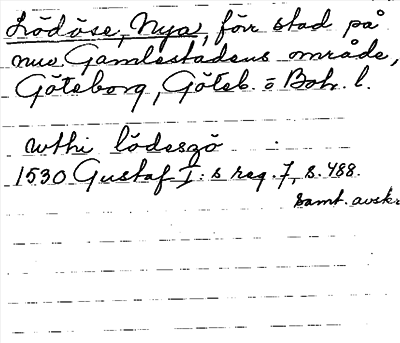 Lödöse, Nya, förr stad på
nuv. Gamlestadens område,
Göteborg, Göteb. o Boh. l.
wthi lödeszö
1530 Gustaf I:s reg. 7, s. 488.
samt. avskr.